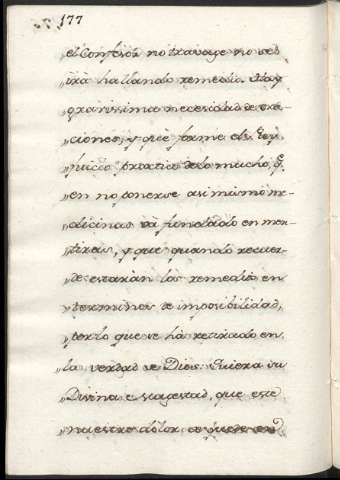 177
el Confesor no trabaje no se
irà hallando remedio. Hay
„ gravissima necesidad de ora-
„ ciones, y que forme el Rey
„ juicio practico de lo mucho, q.
„ en no ponerse asi mismo me-
„ dicinas và fundado en men-
„ tiras, y que quando recuer-
„ de estaràn los remedios en
„ terminos de imposibilidad,
„ por lo que se hà retirado en
„ la verdad de Dios: Quiera su
„ Divina Magestad, que este
„ nuestro dolor se quede en